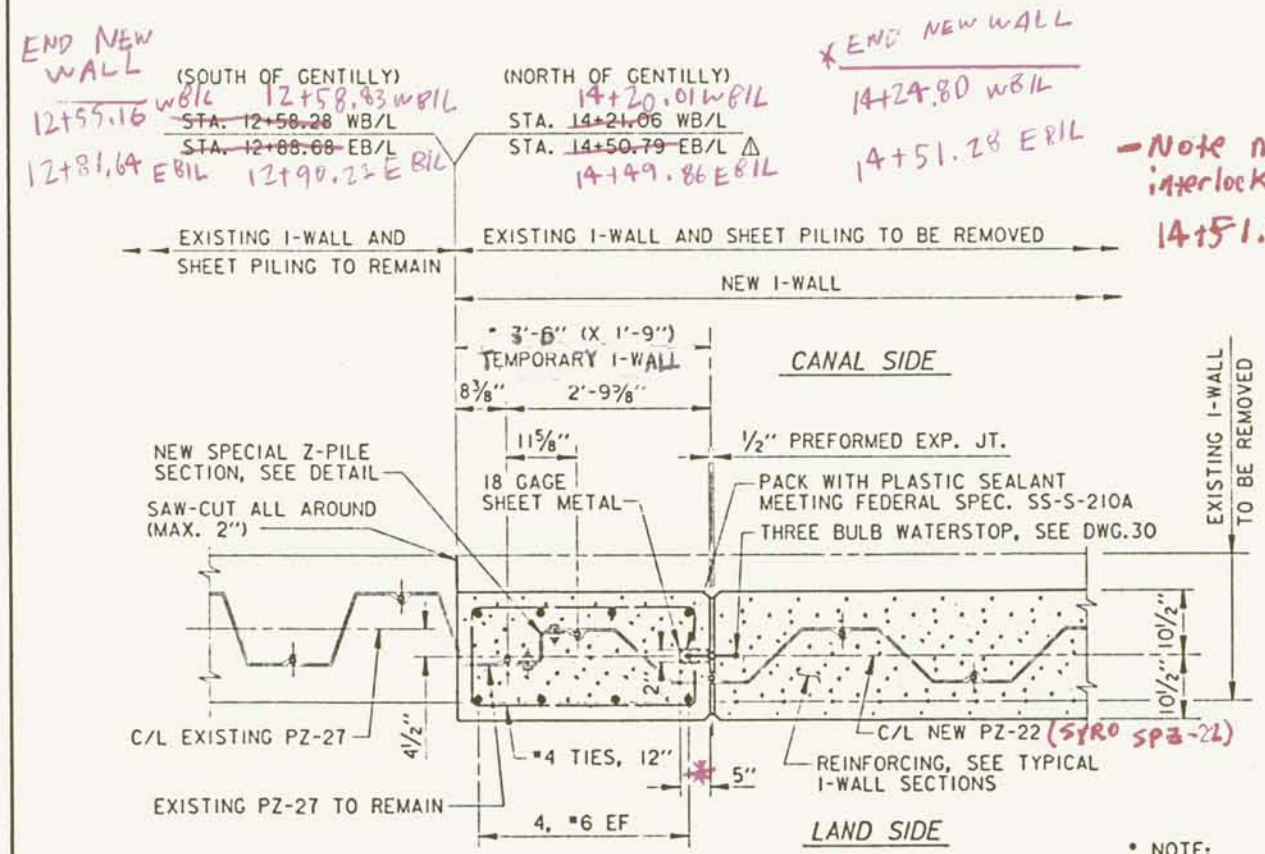 END NEW
WALL
12+55.16 WB/L
12+81.64 EB/L
(SOUTH OF GENTILLY)
12+58.83 WB/L
STA. 12+58.28 WB/L
STA. 12+88.68 EB/L
12+90.22 EB/L
(NORTH OF GENTILLY)
14+20.01 WB/L
STA. 14+21.06 WB/L
STA. 14+50.79 EB/L
14+49.86 EB/L
* END NEW WALL
14+24.80 WB/L
14+51.28 EB/L
- Note
interlock
14+51.
EXISTING I-WALL AND
SHEET PILING TO REMAIN
EXISTING I-WALL AND SHEET PILING TO BE REMOVED
NEW I-WALL
(X 1'-9")
TEMPORARY I-WALL
CANAL SIDE
8⅜"
2'-9⅜"
11⅝"
½" PREFORMED EXP. JT.
NEW SPECIAL Z-PILE
SECTION, SEE DETAIL
18 GAGE
SHEET METAL
PACK WITH PLASTIC SEALANT
MEETING FEDERAL SPEC. SS-S-210A
SAW-CUT ALL AROUND
(MAX. 2")
THREE BULB WATERSTOP, SEE DWG.30
EXISTING I-WALL
TO BE REMOVED
10½"
10½"
2"
4½"
C/L EXISTING PZ-27
C/L NEW PZ-22 (SYRO SPZ-22)
#4 TIES, 12"
REINFORCING, SEE TYPICAL
I-WALL SECTIONS
*
5"
EXISTING PZ-27 TO REMAIN
4, #6 EF
LAND SIDE
* NOTE: